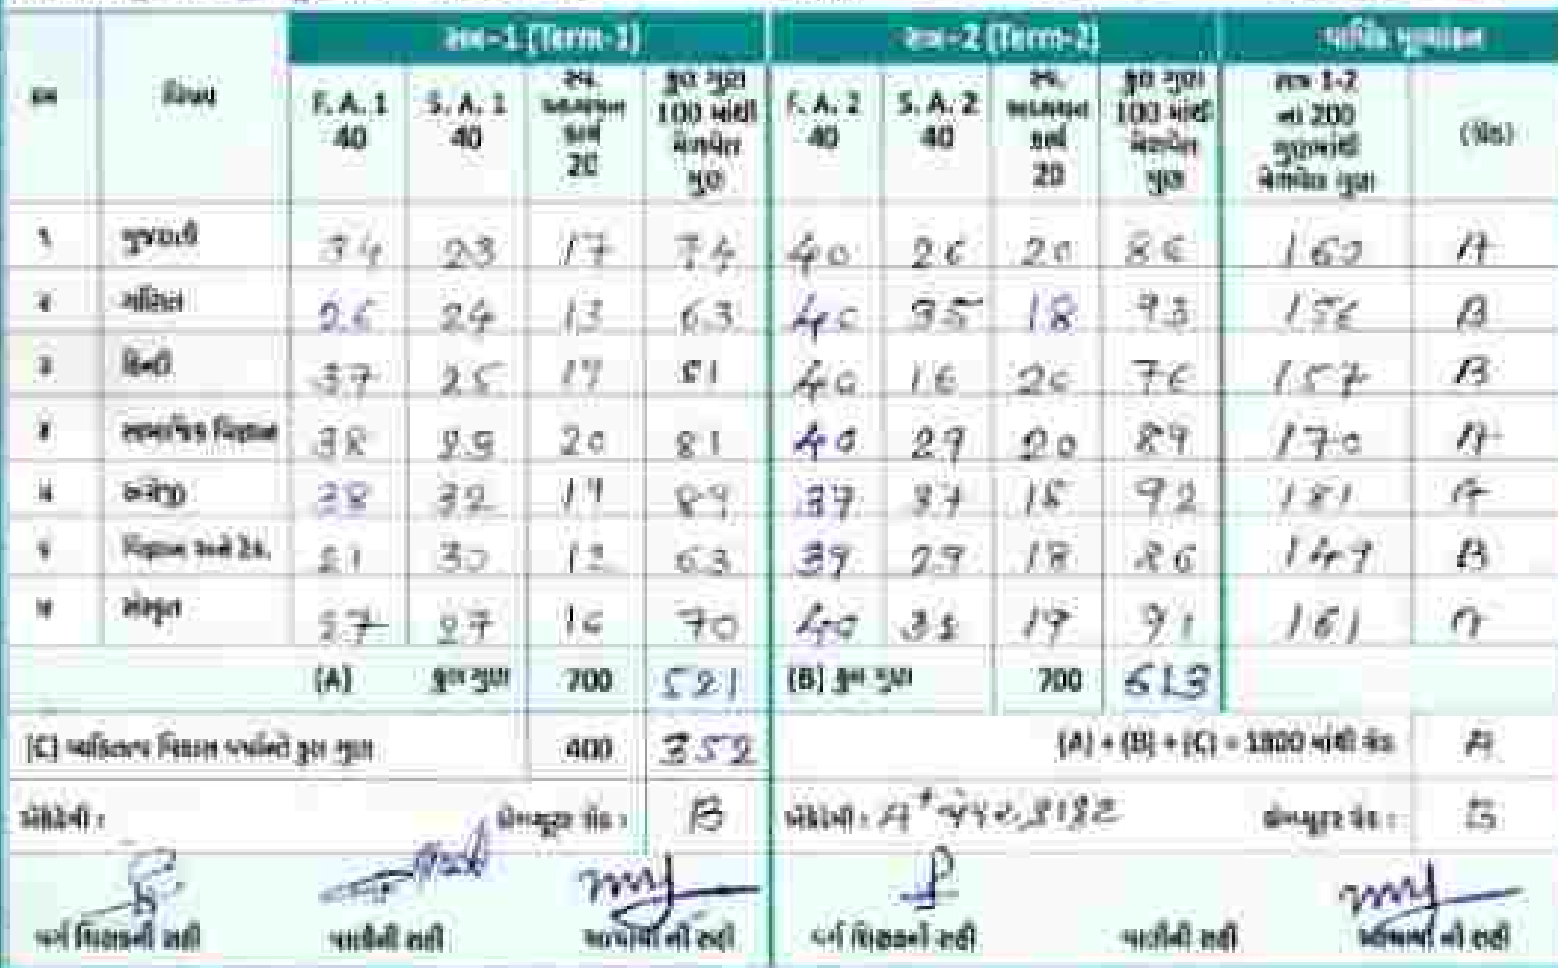 સત્ર-1 (Term-1) સત્ર-2 (Term-2) વાર્ષિક મૂલ્યાંકન
ક્રમ વિષય F. A. 1 40 S. A. 1 40 સ્વ. અધ્યયન કાર્ય 20 કુલ ગુણ 100 માંથી મેળવેલ ગુણ F. A. 2 40 S. A. 2 40 સ્વ. અધ્યયન કાર્ય 20 કુલ ગુણ 100 માંથી મેળવેલ ગુણ સત્ર 1-2 ના 200 ગુણમાંથી મેળવેલ ગુણ (ગ્રેડ)
૧ ગુજરાતી 34 23 17 74 40 26 20 86 160 A
૨ ગણિત 26 24 13 63 40 35 18 93 156 B
૩ હિન્દી 37 25 19 81 40 16 20 76 157 B
૪ સામાજિક વિજ્ઞાન 38 23 20 81 40 29 20 89 170 A
૫ અંગ્રેજી 38 32 19 89 37 37 18 92 181 A
૬ વિજ્ઞાન અને ટેક. 21 30 12 63 39 29 18 86 149 B
૭ સંસ્કૃત 27 27 16 70 40 32 19 91 161 A
(A) કુલ ગુણ 700 521 (B) કુલ ગુણ 700 613
(C) વ્યક્તિત્વ વિકાસ પત્રકનો કુલ ગુણ 400 352 (A) + (B) + (C) = 1800 માંથી ગ્રેડ A
કોમ્પ્યુટર ગ્રેડ : B A+ કોમ્પ્યુટર ગ્રેડ : B
વર્ગ શિક્ષકની સહી વાલીની સહી આચાર્ય ની સહી વર્ગ શિક્ષકની સહી વાલીની સહી આચાર્ય ની સહી